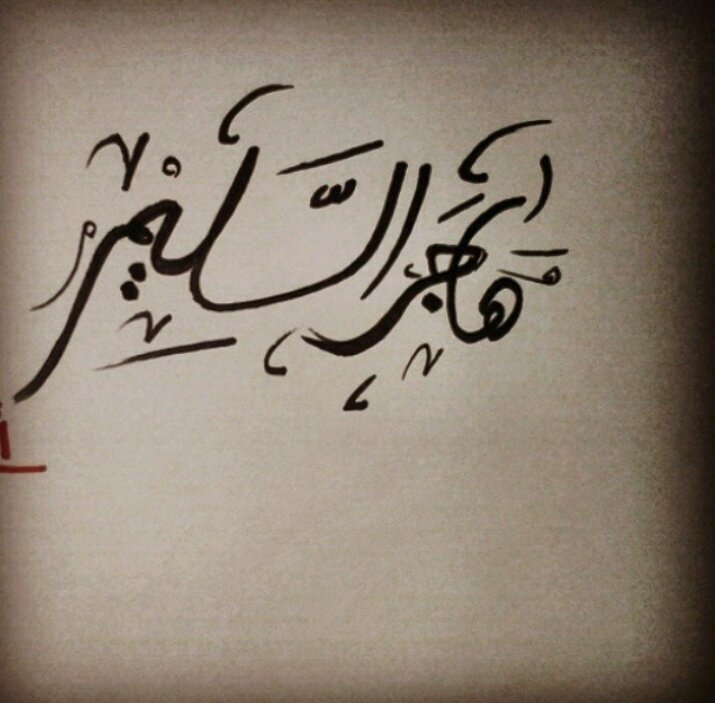 هاجر السليم